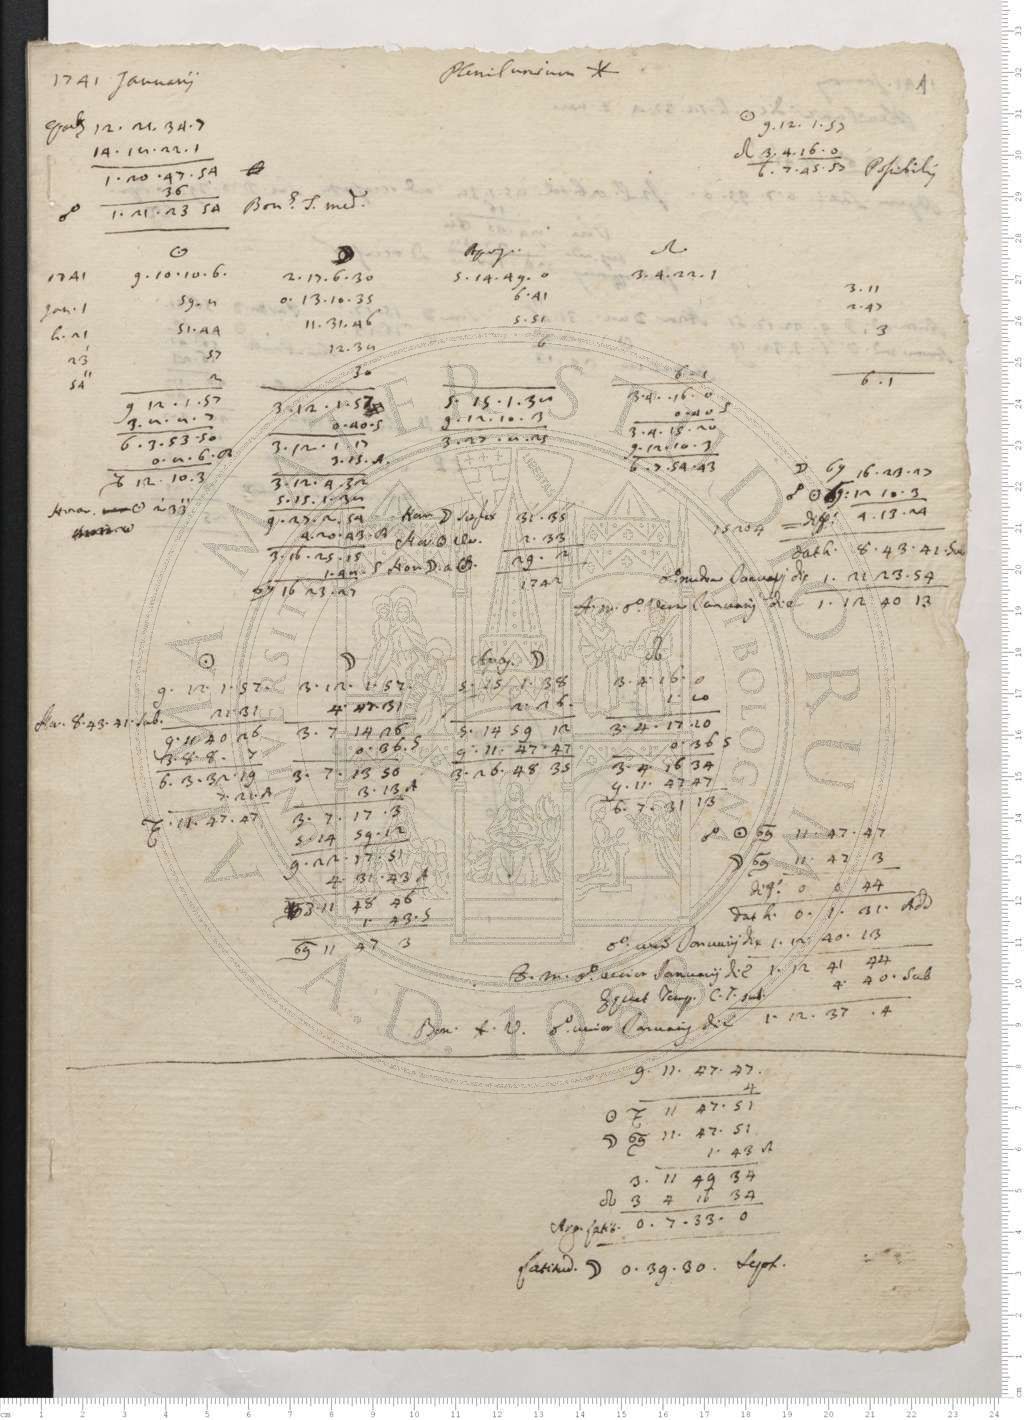 1741 Januarij
Plenilunium *
1
12. 21. 34. 7
14. 12. 22. 1
1. 20. 47. 54
36
☍ 1. 21. 23 54 Bon. T. med.
☉ 9. 12. 1. 57
☊ 3. 4. 16. 0
6. 7. 45. 57 Possibilis
☉ ☽ Apog. ☊
1741 9. 10. 10. 6. 2. 17. 6. 30 5. 14. 49. 0 3. 4. 22. 1
3. 11
Jan. 1 59. 2 0. 13. 10. 35 6. 41
2. 47
h. 21 51. 44 11. 31. 46 5. 51
. 3
23' 57 12. 34 6
54'' 2 30 6. 1
6. 1
9 12. 1. 57 3. 12. 1. 57 5. 15. 1. 38 3. 4. 16. 0
3. 2. 2. 7 0. 40. S 9. 12. 10. 3 0. 40 S
6. 3. 53. 50 3. 12. 1. 17 3. 27. 2. 25 3. 4. 15. 20
0. 2. 6. A 3. 15. A. 9. 12. 10. 3
♑ 12. 10. 3 3. 12. 4. 32 6. 7. 54. 43
☽ ♋ 16. 23. 27
5. 15. 1. 38
☍ ☉ ♋: 12 10. 3
Horar. ☉ 2' 33''
9. 27. 2. 54 Hor ☽ 31. 35
15204
diff. 4. 13. 24
4. 20. 43. A Hor ☉ 2. 33
dat h. 8. 43. 41. Sub
3. 16. 25. 15 29. 2
1. 42. S Hor ☽ a ☉. 1742
♋ 16 23. 27
☍ media Januarij die 1. 21 23. 54
A. m. ☍ vera Januarij die 1. 12 40 13
☉ ☽ Apog. ☽ ☊
9. 12. 1. 57. 3. 12. 1. 57. 5. 15. 1. 38 3. 4. 16. 0
Hor. 8. 43. 41. Sub. 21. 31 4. 47. 31 2. 26. 1. 20
9. 11 40 26 3. 7. 14 26 5. 14 59 12 3. 4. 17. 20
3. 8. 8. 7 0. 36. S 9. 11. 47. 47 0. 36 S
6. 3. 32. 19 3. 7. 13 50 3. 26. 48 35 3. 4. 16 34
7. 21. A 3. 13 A 9. 11. 47 47
♑. 11. 47. 47 3. 7. 17. 3 6. 7. 31 13
5. 14 59. 12
☍ ☉ ♋ 11. 47. 47
9. 22. 17. 51
☽ ♋ 11. 47. 3
4. 31. 43 A
diff. 0 0 44
♋ 11 48 46
dat h. 0. 1. 31. Add
1. 43. S
♋ 11 47 3
☍ vera Januarij die 1. 12. 40. 13
B. m. ☍ verior Januarij die 1. 12 41 44
Equat Temp. C. T. sub. 4. 40. Sub
Bon. t. V. ☍ verior Januarij die 1. 12. 37. 4
9. 11. 47. 47.
4
☉ ♑ 11 47. 51
☽ ♋ 11. 47. 51
1. 43 A
3. 11 49 34
☊ 3 4 16 34
Arg. latit. 0. 7. 33. 0
Latitud. ☽ 0. 39. 30. Sept.
ALMA MATER STUDIORUM
UNIVERSITAS BOLOGNA
A.D. 1088